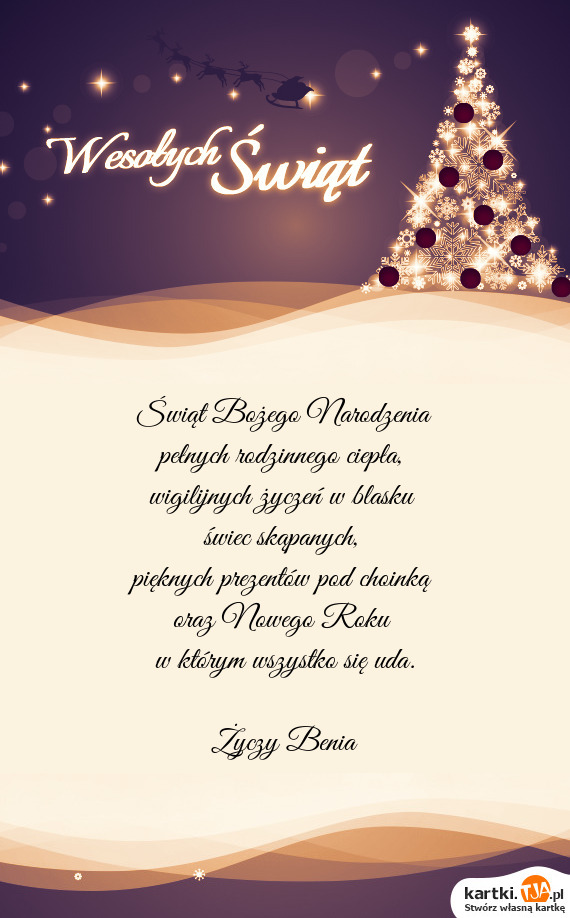 Wesołych Świąt
Świąt Bożego Narodzenia
pełnych rodzinnego ciepła,
wigilijnych życzeń w blasku
świec skąpanych,
pięknych prezentów pod choinką
oraz Nowego Roku
w którym wszystko się uda.
Życzy Benia
kartki.TJA.pl
Stwórz własną kartkę